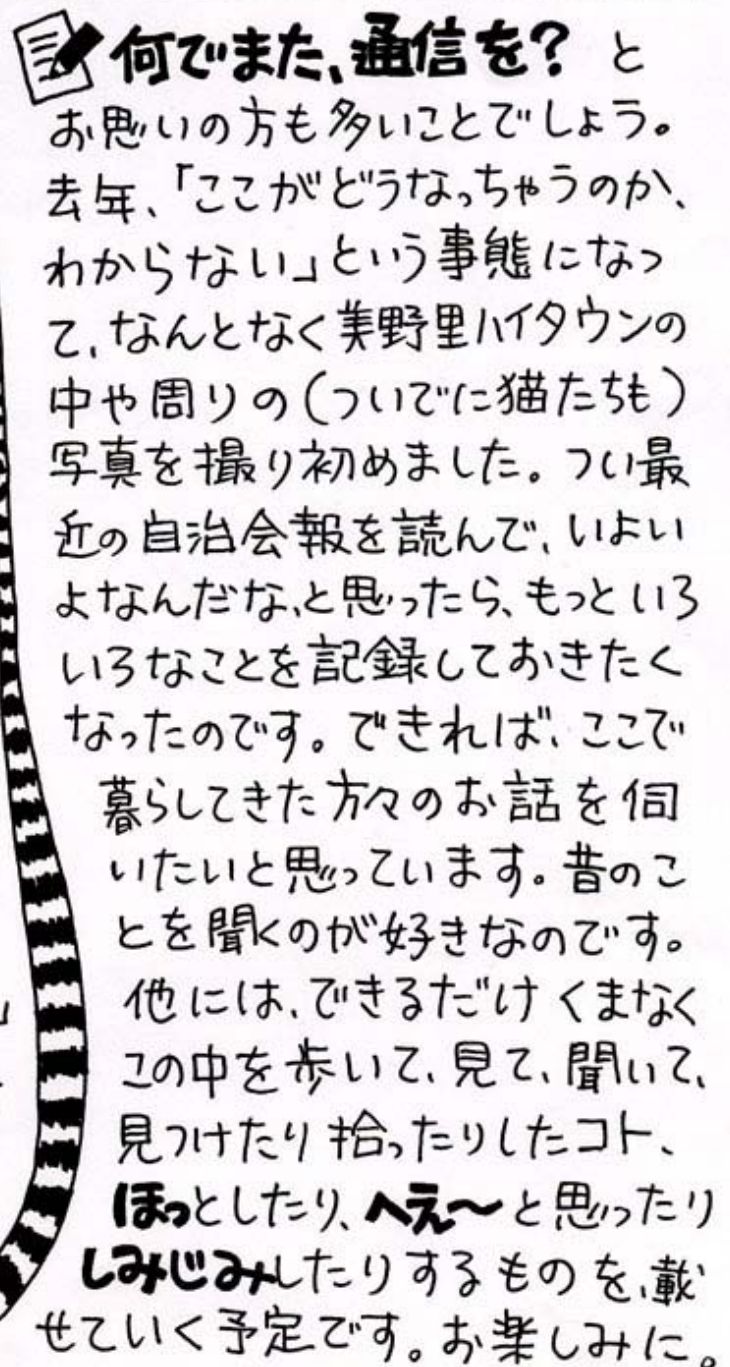 何でまた、通信を？と
お思いの方も多いことでしょう。
去年、「ここがどうなっちゃうのか、
わからない」という事態になっ
て、なんとなく美野里ハイタウンの
中や周りの(ついでに猫たちも)
写真を撮り初めました。つい最
近の自治会報を読んで、いよい
よなんだな、と思ったら、もっといろ
いろなことを記録しておきたく
なったのです。できれば、ここで
暮らしてきた方々のお話を伺
いたいと思っています。昔のこ
とを聞くのが好きなのです。
他には、できるだけくまなく
この中を歩いて、見て、聞いて、
見つけたり拾ったりしたコト、
ほっとしたり、へえ〜と思ったり
しみじみしたりするものを、載
せていく予定です。お楽しみに。
」